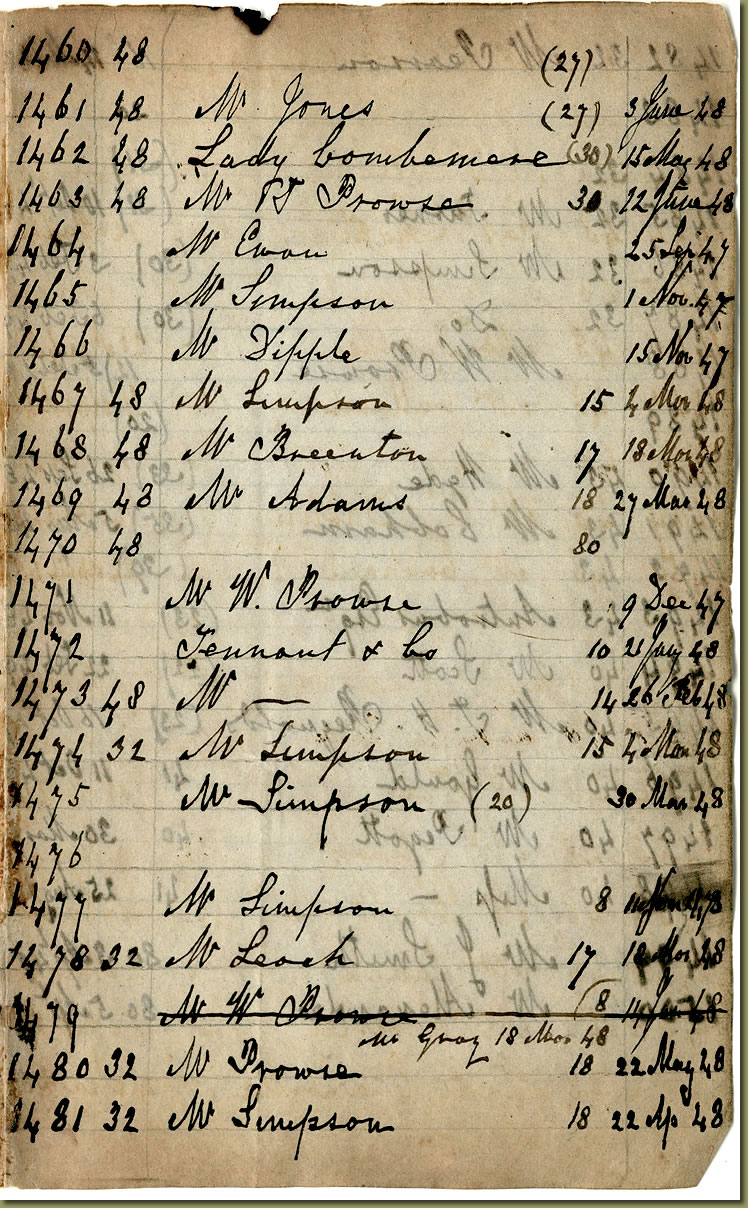 1460 48 (27)
1461 48 Mr Jones (27) 3 June 48
1462 48 Lady Combermere (30) 15 May 48
1463 48 Mr TJ Prowse 30 12 June 48
1464 Mr Ewan 25 Sep 47
1465 Mr Simpson 1 Nov. 47
1466 Mr Dipple 15 Nov 47
1467 48 Mr Simpson 15 4 Mar 48
1468 48 Mr Breenton 17 18 Mar 48
1469 48 Mr Adams 18 27 Mar 48
1470 48 80
1471 Mr W. Prowse 9 Dec 47
1472 Tennant & Co 10 21 Jany 48
1473 48 Mr — 14 26 Feb 48
1474 32 Mr Simpson 15 4 Mar 48
1475 Mr Simpson (20) 30 Mar 48
1476
1477 Mr Simpson 8
1478 32 Mr Leach 17 18 Mar 48
1479 Mr W Prowse (8 14 Jan 48
Mr Gray 18 Mar 48
1480 32 Mr Prowse 18 22 May 48
1481 32 Mr Simpson 18 22 Ap 48